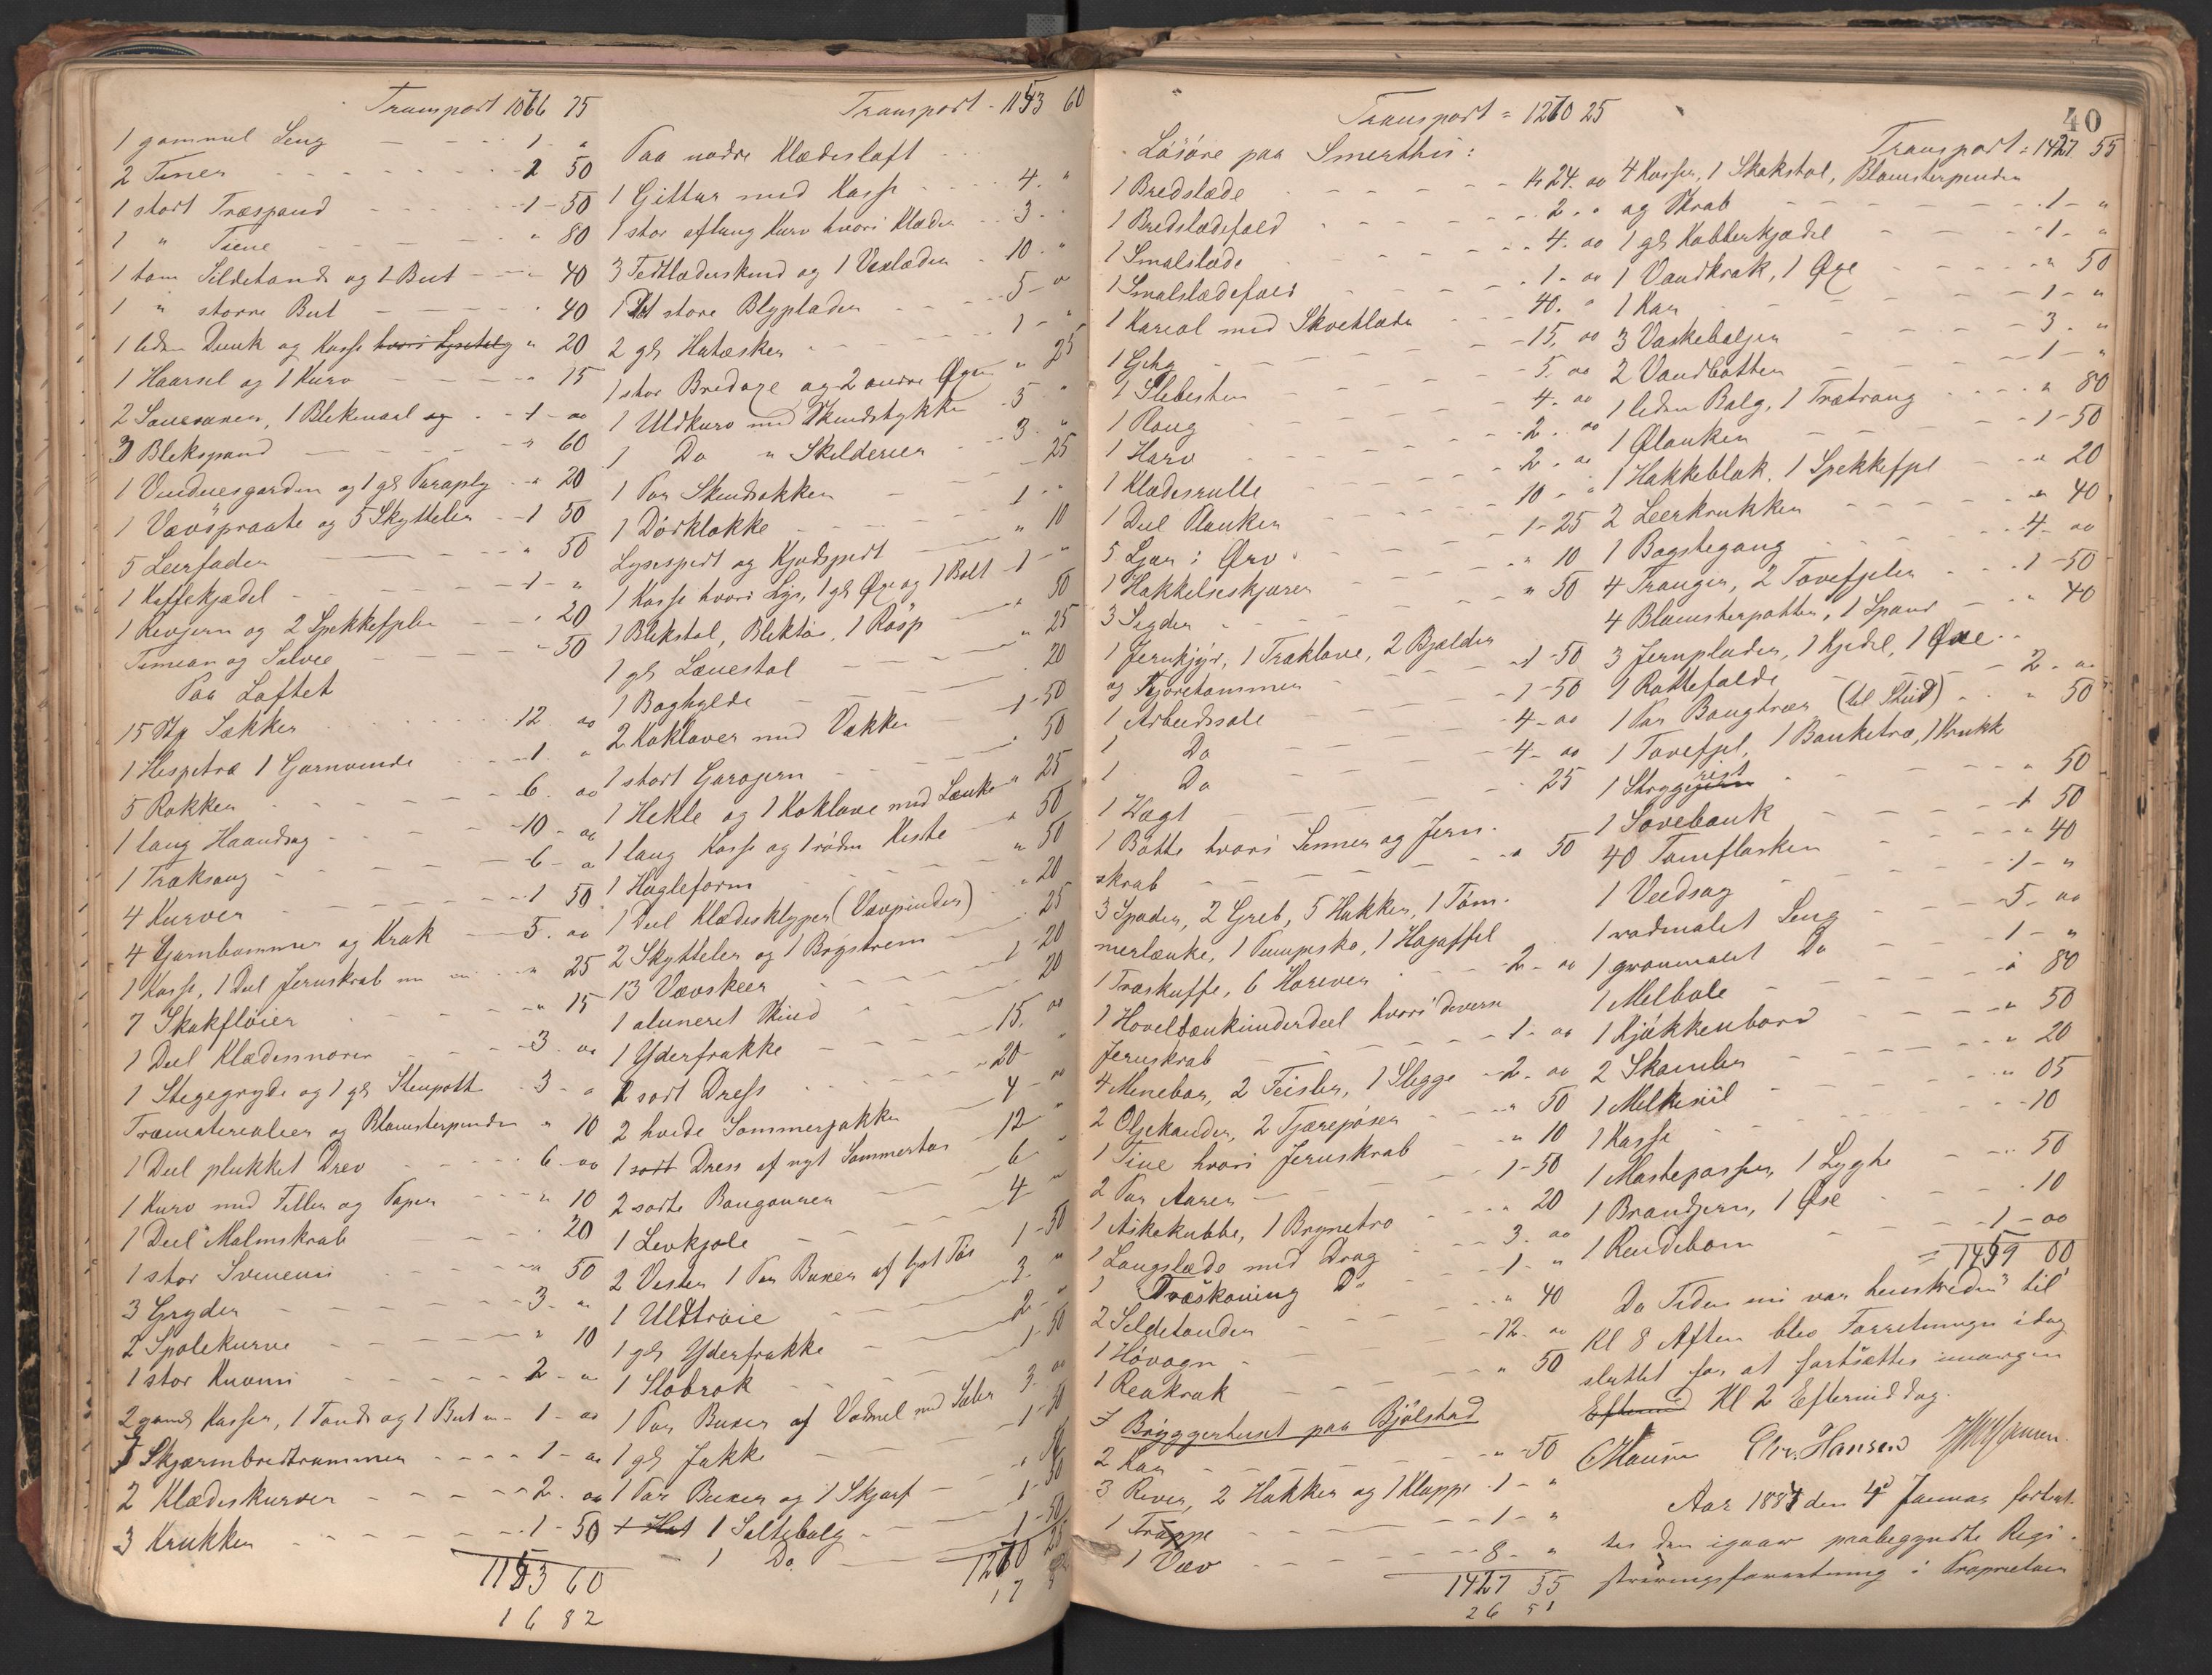 Transport 1066 75
1 gammel Seng - 1 - "
2 Tiner - 2 50
1 stort Træspand - 1 - 50
1 " Tiene " 80
1 tom Sildetønde og 1 But - 40
1 " større But - 40
1 liden Dunk og Kasse " 20
1 Haarsel og 1 Kurv - 15
1 Blikmaal og - 1 - oo
Blikspand " 60
1 gl Paraply " 20
1 og 5 Skytteler - 1 50
5 Leerfade " 50
1 Kaffekjædel - 1 - "
1 Revjern og 2 Spekkefjeler - 20
Timian og Salvie - 50
Paa Loftet
15 Sække 12 oo
1 Hespetræ 1 Garnvinde 1 "
5 Rokker - 6 oo
1 lang Haandsag - 10 - oo
1 Træksaug - 6 - "
4 Kurver - 1 50
4 Garnbommer og Krak - 5. oo
1 Kasse, 1 Deel Jernskrab " 25
7 Skakfløier " 15
1 Deel Klædessnorer - 3 oo
1 Stegegryde og 1 gl Steupotte 3 - "
Træmaterialier og Blomsterpinder " 10
1 Deel plukket Drev - 6 - oo
1 Kurv med Filler og Papir " 10
1 Deel Malmskrab 20
1 stor " 50
3 Gryder - 3 - "
2 Spolekurve " 10
1 stor - 2 - "
2 gamle Kasser, 1 Tønde og 1 But - 1 - oo
Skjærmbredtrammer - 1 - oo
2 Klædeskurver - 2. oo
3 Krukker - 1 - 50
1153 60
1682
Transport - 1153 60
Paa nedre Klædesloft
1 Gittar med Kasse - 4. "
1 stor aflang Kurv hvori Klæder - 3 -
3 Fedtlæderskind og 1 Voxlæder - 10 - "
1 Sæt store Blyplader - 5 - "
2 gl Hatæsker - 1 - "
1 stor Bredøxe og 2 andre Øxer " 25
1 Uldkurv med Skindstykker - 3 "
1 Do " Skilderier - 3 "
1 Par Skindsokker - 25
1 Dørklokke - 1 - "
Lysespidt og Kjødspidt " 10
1 Kasse hvori Lys, 1 gl Øxe og 1 Bolt - 1 - "
1 Blikstol, Bliktøi, 1 Rasp " 50
1 gl Lænestol " 25
1 Baghylde - 20
2 Koklaver med Vækker - 1 - 50
1 stort Garnjern - 50
1 Hekle og 1 Koklave med Lænke " 25
1 lang Kasse og 1 röden Kiste " 50
1 Hagleform " 50
1 Deel Klædesklyper (Vævpinder) " 20
2 Skytteler og 1 Brystrem 25
13 Vævskeer 1 - 20
1 aluneret Skind 20
1 Yderfrakke - 15. oo
1 sort Dress - 20 - "
2 hvide Sommerjakker - 4 - oo
1 sort Dress af nyt Sommertøi - 12 "
2 sorte Bongourer - 6 -
1 Livkjole - 4 "
2 Vester 1 Par Buxer af lyst Tøi 1 - 50
1 Uldtrøie - 3 "
1 gl Yderfrakke - 2 - "
1 Slobrok - 1 - 50
1 Par Buxer af Vadmel med Seler 3. oo
1 gl Jakke - 1 - 50
1 Par Buxer og 1 Skjærf
1 Hat 1 Saltebalg - 1 - 50
1 Do 25
1260
Transport = 1260 25
Løsøre paa Smerthus:
1 Bredslæde 24. oo
1 Bredslædefæld - 2. "
1 Smalslæde - 4. oo
1 Smalslædefæld - 1 - oo
1 Kareol med Skvetlæder 40. "
1 Gehg - 15. oo
1 Slibesten - 5. oo
1 Ploug - 4. oo
1 Harv - 2. oo
1 Klædesrulle - 2. oo
1 Deel Planker 10 - "
5 Ljaer i Orv 1 - 25
1 Hakkelseskjærer " 10
3 Sigder " 50
1 Jernkjyr, 1 Træklave, 2 Bjælder
og Kjøretømmer - 1 - 50
1 Arbeidssæle - 1 - 50
1 Do - 4 - oo
1 Do - 4 - oo
1 Vægt - 25
1 Bøtte hvori Sinner og Jern-
skrab " 50
3 Spader, 2 Greb, 5 Hakker, 1 Töm-
merlænke, 1 Pumpesko, 1 Høgaffel
1 Træskuffe, 6 Høriver - 2 - oo
1 Hovelbænkunderdeel hvori diverse
Jernskrab - 1 - oo
4 Minebor, 2 Feisler, 1 Slegge - 2. oo
2 Oljekander, 2 Tjærepøser " 50
1 Tine hvori Jernskrab " 10
2 Par Aarer 1 - 50
1 Askekubbe, 1 Brynetro 20
1 Langslæde med Drag - 3. oo
1 Træskoning Do - 1 - "
2 Sildetønder " 40
1 Høvogn - 12 - oo
1 Reakrak " 50
I Bryggerhuset paa Bjölstad
2 Kar " 50
3 River, 2 Hakker og 1 Kloppe - 1 - "
1 Trappe - 1 - "
1 Væv 8 - "
1427 55
26 51
40
Transport = 1427 55
4 Kasser, 1 Skakstol, Blomsterpinder
og Skrab - 1 - "
1 gl Kobberkjædel - 1 - "
1 Vandkrak, 1 Øxe " 50
1 Kar - 1 - "
3 Vaskebaljer - 3. "
2 Vandbøtter - 1 - "
1 liden Balg, 1 Trætraug " 80
1 Ølanker - 1 - 50
1 Hakkeblok, 1 Spekkefjel " 20
2 Leerkrukker " 40
1 Bagstegang - 4 - oo
4 Trauger, 2 Tovefjeler - 1 - 50
4 Blomsterpotter, 1 Spand " 40
3 Jernplader, 1 Kjedel, 1 Øse
1 Rottefælde - 2 - oo
1 Par Baugtrær (til Stud) " 50
1 Tovefjel, 1 Banketræ, 1 Krukk
1 Strygejern rist " 50
1 Sovebænk - 1 50
40 Tomflasker " 40
1 Veedsag - 1 - "
1 rødmalet Seng - 5 - oo
1 grønmalet Do - 1 - "
1 Melbole " 80
1 Kjøkkenbord " 50
2 Skamler " 20
1 Melkesiil " 05
1 Kasse - 10
1 Mostepasser, 1 Lygte " 50
1 Brandjern, 1 Øse - 10
1 Rendebom - 1 - oo
= 1459 00
Da Tiden nu var henskreden til
Kl 8 Aften blev Forretningen idag
sluttet for at fortsættes imorgen
Eftermid Kl 2 Eftermiddag.
Chr. Hansen
Aar 1884 den 4d Januar fortsat-
tes den igaar paabegyndte Regi-
streringsforretning i Proprietær